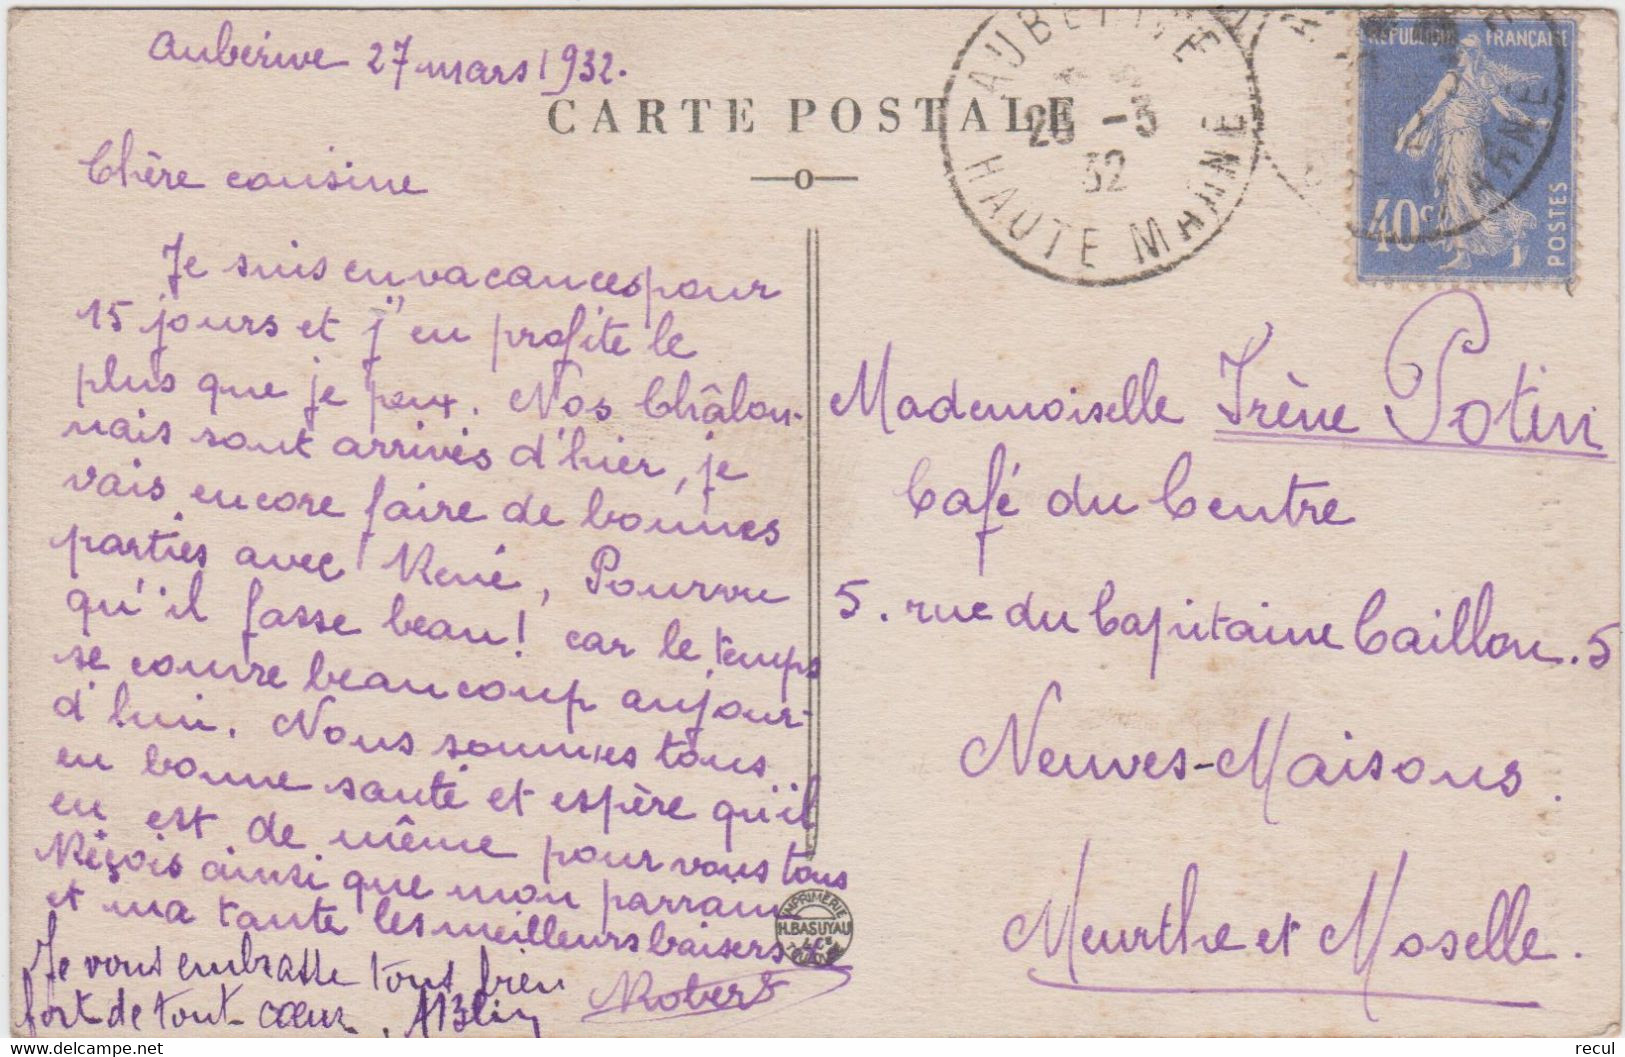 Auberive 27 mars 1932.
CARTE POSTALE
Chère cousine
Je suis en vacances pour
15 jours et j'en profite le
plus que je peux. Nos Châlon-
nais sont arrivés d'hier, je
vais encore faire de bonnes
parties avec René, Pourvu
qu'il fasse beau! car le temps
se couvre beaucoup aujour-
d'hui. Nous sommes tous
en bonne santé et espère qu'il
en est de même pour vous tous
Reçois ainsi que mon parrain
et ma tante les meilleurs baisers de
Robert
Je vous embrasse tous bien
fort de tout cœur.
IMPRIMERIE
H. BASUYAU
& Cie
TOULOUSE
AUBERIVE
28 -3
32
HAUTE MARNE
RÉPUBLIQUE FRANÇAISE
40c
POSTES
Mademoiselle Irène Potin
Café du Centre
5. rue du Capitaine Caillon. 5
Neuves-Maisons.
Meurthe et Moselle.
www.delcampe.net
recul